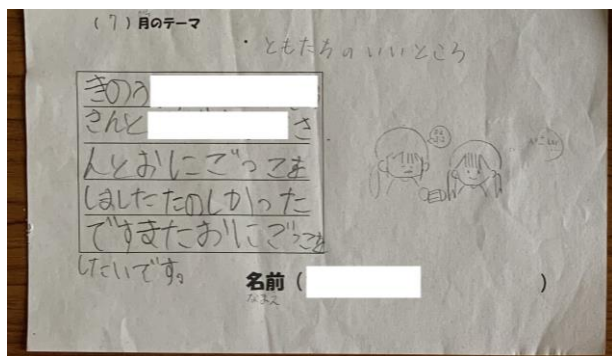 (7)月のテーマ
・ともだちのいいところ
きのう
さんと さ
んとおにごっこを
しましたたのしかった
ですまたおにごっこを
したいです。
名前( )
なまえ